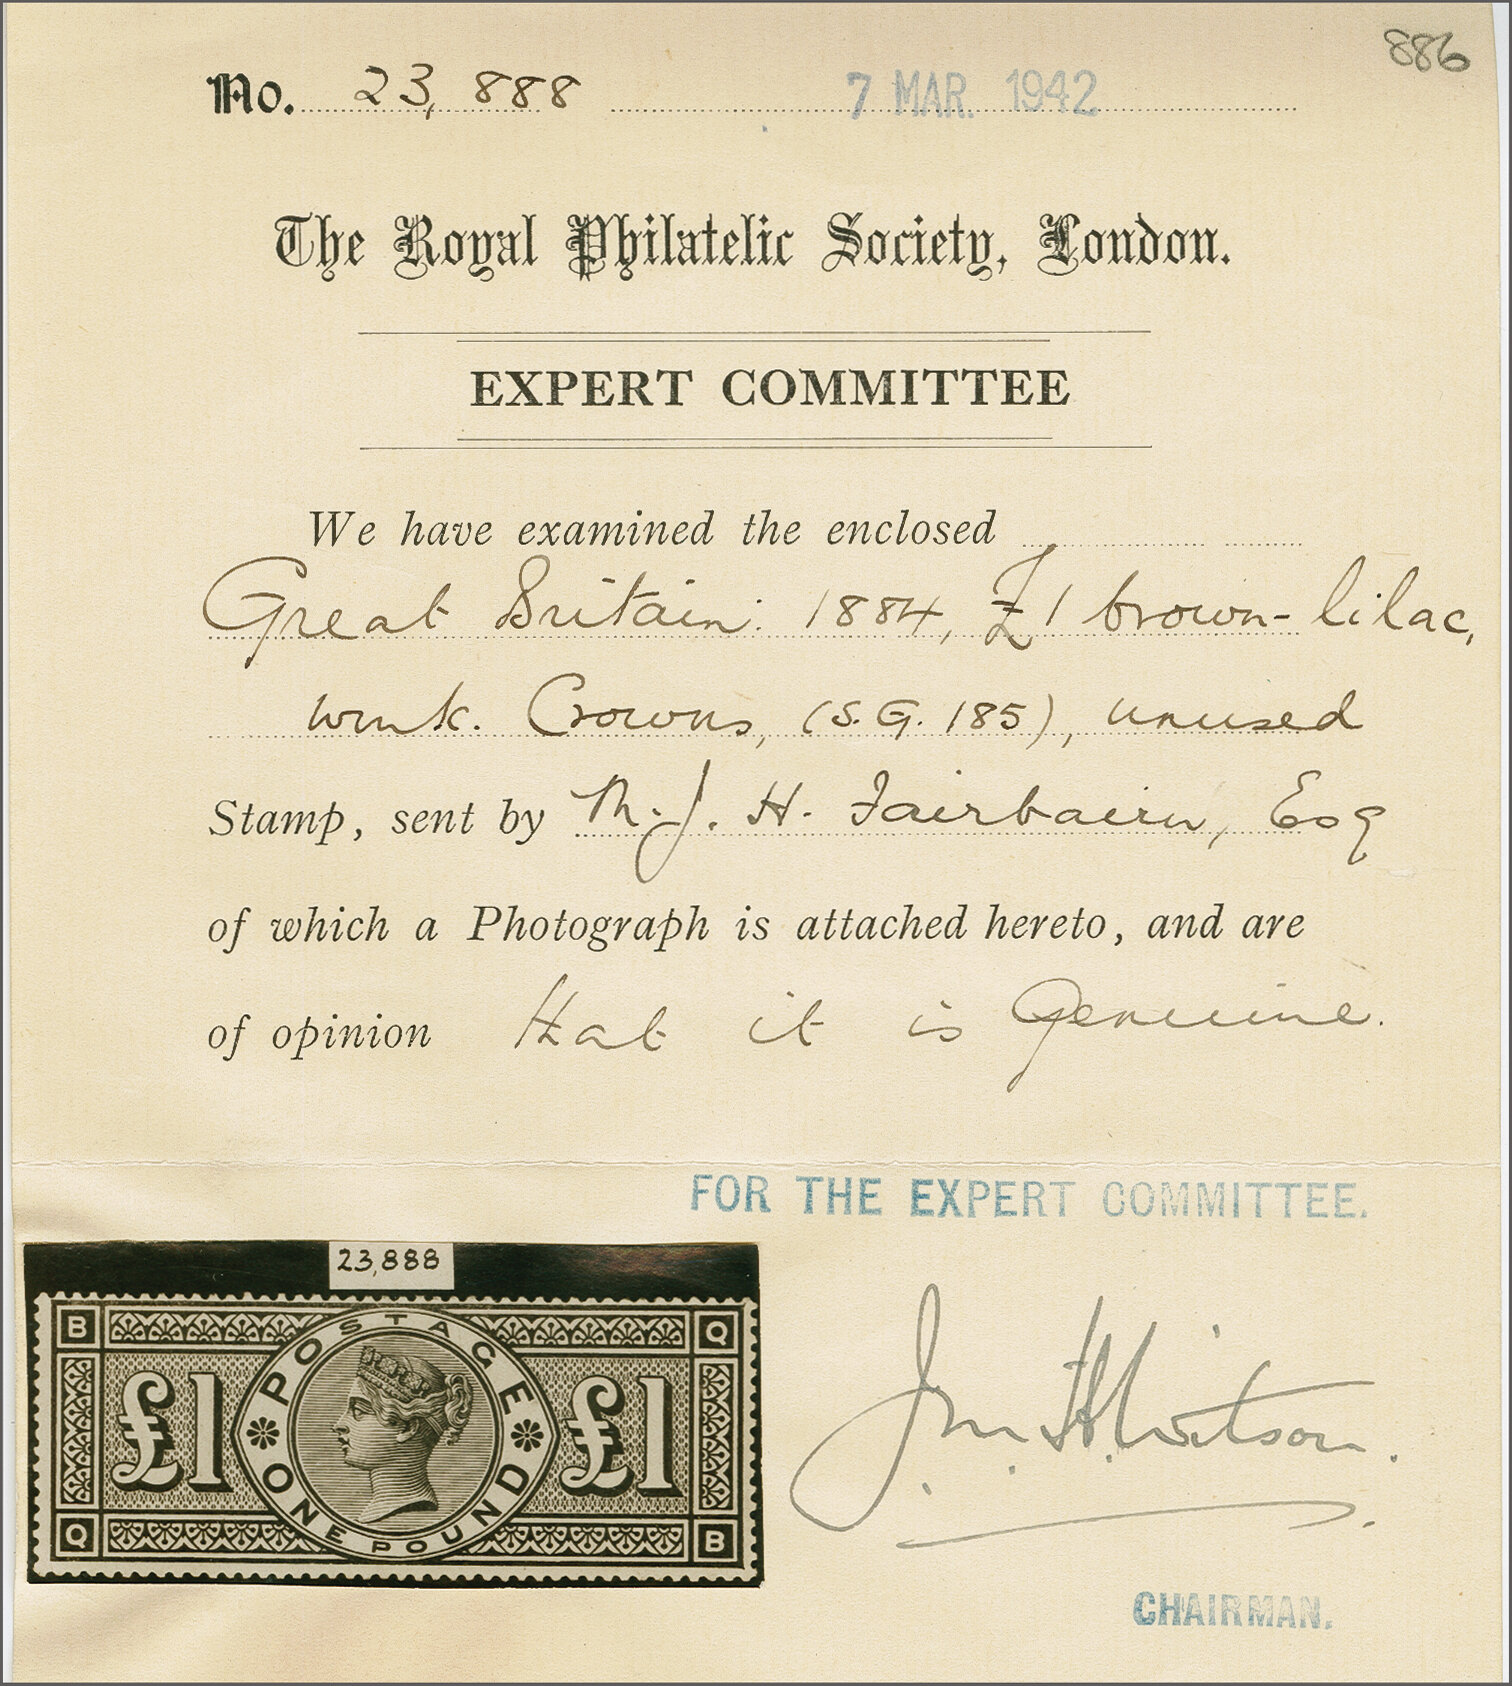 886
No. 23,888 7 MAR. 1942
The Royal Philatelic Society, London.
EXPERT COMMITTEE
We have examined the enclosed
Great Britain: 1884, £1 brown-lilac,
wmk. Crowns, (S.G. 185), unused
Stamp, sent by M. J. H. Fairbairn, Esq
of which a Photograph is attached hereto, and are
of opinion that it is Genuine.
FOR THE EXPERT COMMITTEE.
23,888
B POSTAGE Q
£1 £1
Q ONE POUND B
CHAIRMAN.